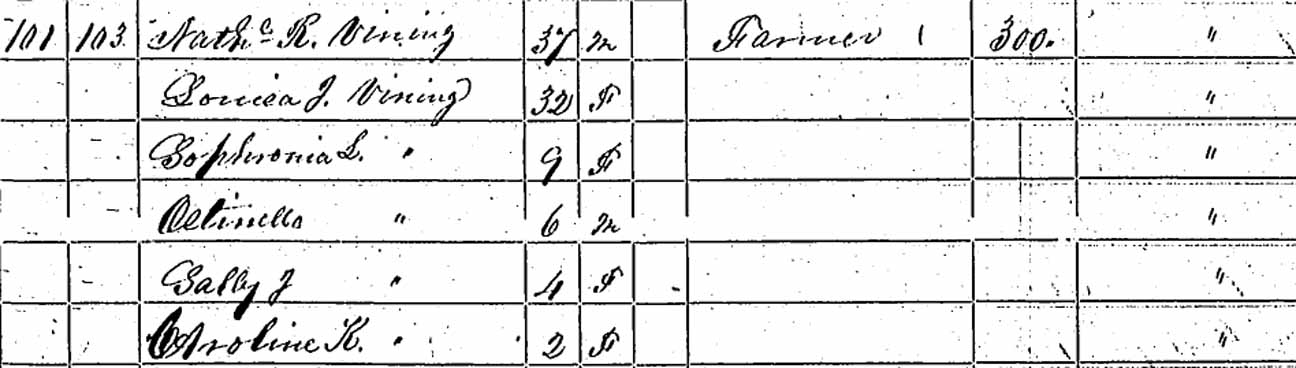 101 103 Nathc R. Vining 37 m Farmer 1 300. "
Louisa J. Vining 32 F "
Sophronia L. " 9 F "
" 6 m "
Sally J " 4 F "
Caroline K. " 2 F "